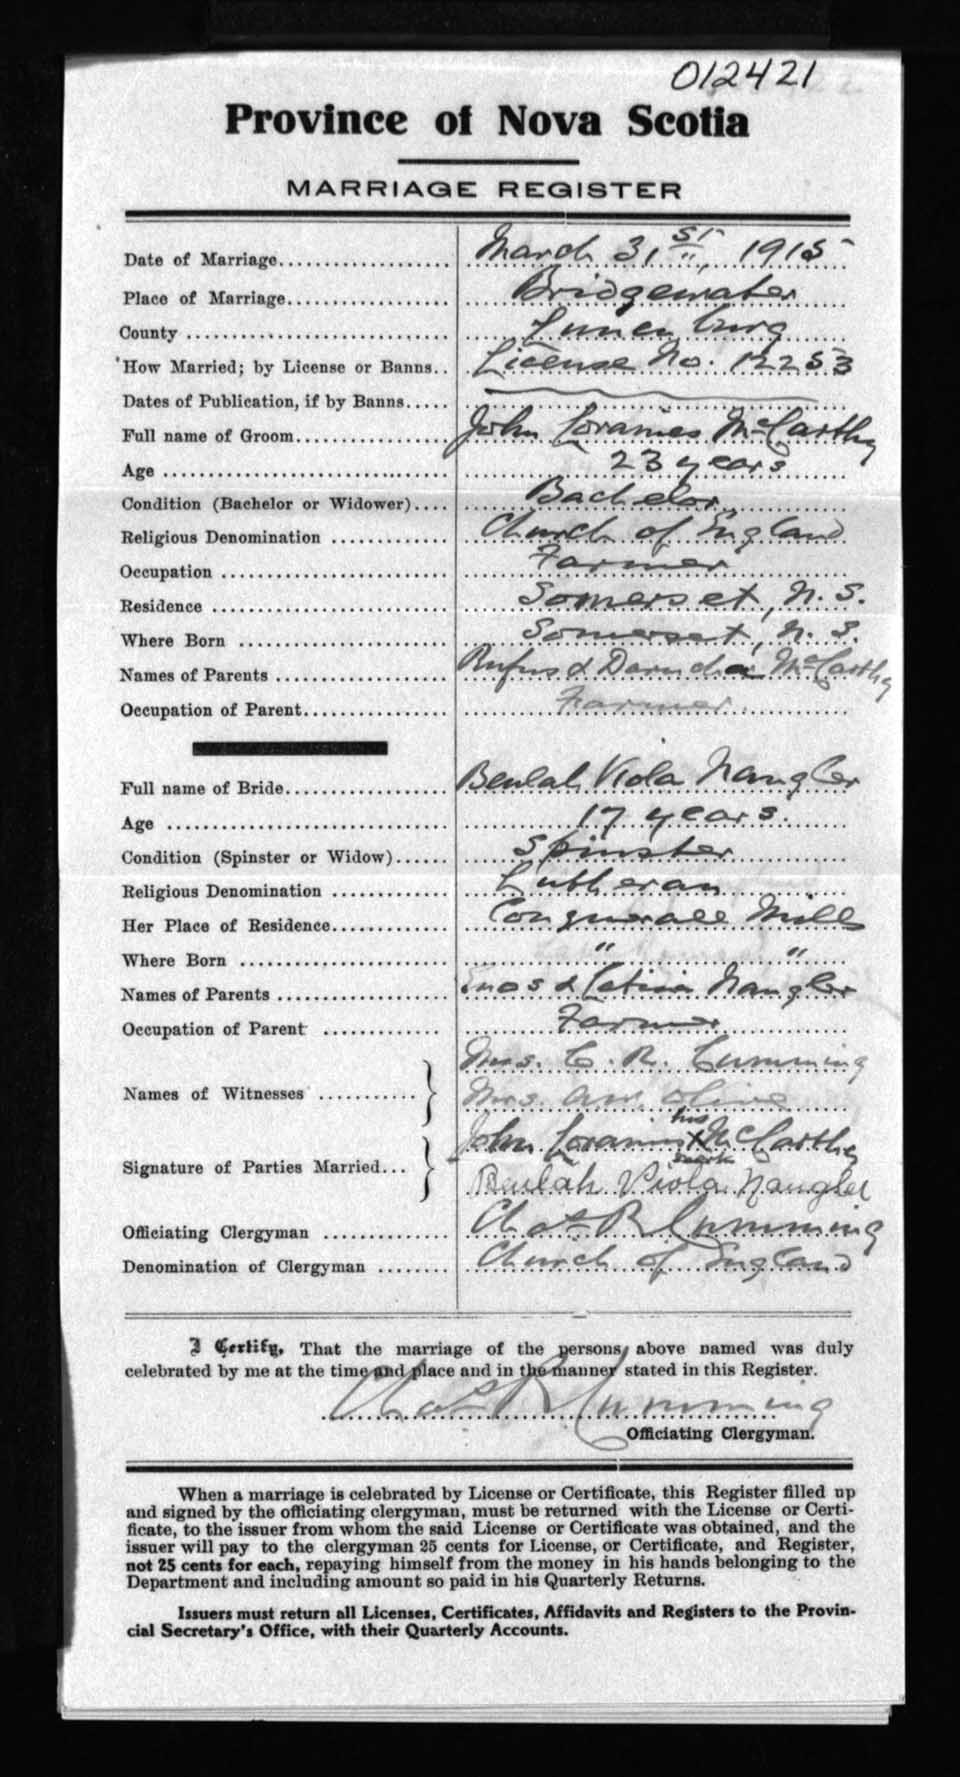 012421
Province of Nova Scotia
MARRIAGE REGISTER
Date of Marriage.................... March 31st, 1915
Place of Marriage.................. Bridgewater
County ............................. Lunenburg
How Married; by License or Banns.. License No. 12253
Dates of Publication, if by Banns.....
Full name of Groom................. John Loramies McCarthy
Age ................................ 23 years
Condition (Bachelor or Widower).... Bachelor
Religious Denomination ............. Church of England
Occupation ......................... Farmer
Residence .......................... Somerset, N. S.
Where Born ........................ Somerset, N. S.
Names of Parents ................... Rufus & McCarthy
Occupation of Parent................ Farmer
Full name of Bride.................. Beulah Viola Naugler
Age ................................ 17 years.
Condition (Spinster or Widow)...... Spinster
Religious Denomination ............. Lutheran
Her Place of Residence............. Conquerall Mills
Where Born ........................ " "
Names of Parents ................... Enos & Naugler
Occupation of Parent ............. Farmer
Mrs. C. R. Cumming
Names of Witnesses ...........
Mrs. Olive
his
John Loramies X McCarthy
mark
Signature of Parties Married...
Beulah Viola Naugler
Officiating Clergyman .............. Chas R Cumming
Denomination of Clergyman ........ Church of England
I Certify, That the marriage of the persons above named was duly
celebrated by me at the time and place and in the manner stated in this Register.
Chas R Cumming
Officiating Clergyman.
When a marriage is celebrated by License or Certificate, this Register filled up
and signed by the officiating clergyman, must be returned with the License or Certi-
ficate, to the issuer from whom the said License or Certificate was obtained, and the
issuer will pay to the clergyman 25 cents for License, or Certificate, and Register,
not 25 cents for each, repaying himself from the money in his hands belonging to the
Department and including amount so paid in his Quarterly Returns.
Issuers must return all Licenses, Certificates, Affidavits and Registers to the Provin-
cial Secretary's Office, with their Quarterly Accounts.